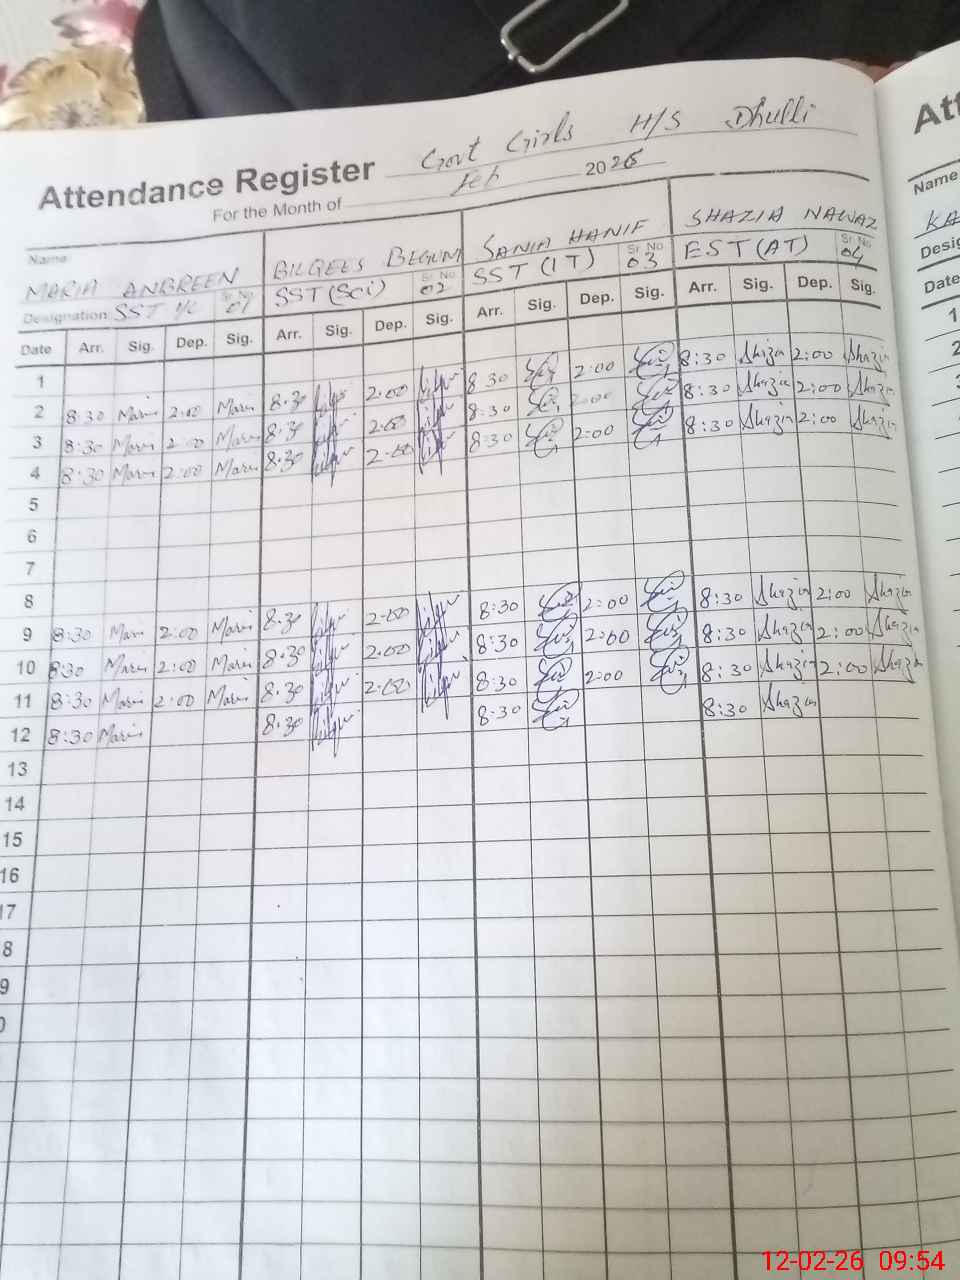 Attendance Register Govt Girls H/S Dhulli
For the Month of Feb 2026
Name MARIA ANBREEN BILQEES BEGUM SANIA HANIF SHAZIA NAWAZ
Designation SST I/C Sr. No 01 SST (Sci) Sr. No 02 SST (IT) Sr. No 03 EST (AT) Sr. No 04
Date Arr. Sig. Dep. Sig. Arr. Sig. Dep. Sig. Arr. Sig. Dep. Sig. Arr. Sig. Dep. Sig.
1
2 8:30 Maria 2:00 Maria 8:30 2:00 8:30 2:00 8:30 Shazia 2:00 Shazia
3 8:30 Maria 2:00 Maria 8:30 2:00 8:30 2:00 8:30 Shazia 2:00 Shazia
4 8:30 Maria 2:00 Maria 8:30 2:00 8:30 2:00 8:30 Shazia 2:00 Shazia
5
6
7
8
9 8:30 Maria 2:00 Maria 8:30 2:00 8:30 2:00 8:30 Shazia 2:00 Shazia
10 8:30 Maria 2:00 Maria 8:30 2:00 8:30 2:00 8:30 Shazia 2:00 Shazia
11 8:30 Maria 2:00 Maria 8:30 2:00 8:30 2:00 8:30 Shazia 2:00 Shazia
12 8:30 Maria 8:30 8:30 8:30 Shazia
13
14
15
16
17
8
9
0
Att
Name
KA
Desig
Date
1
2
12-02-26 09:54